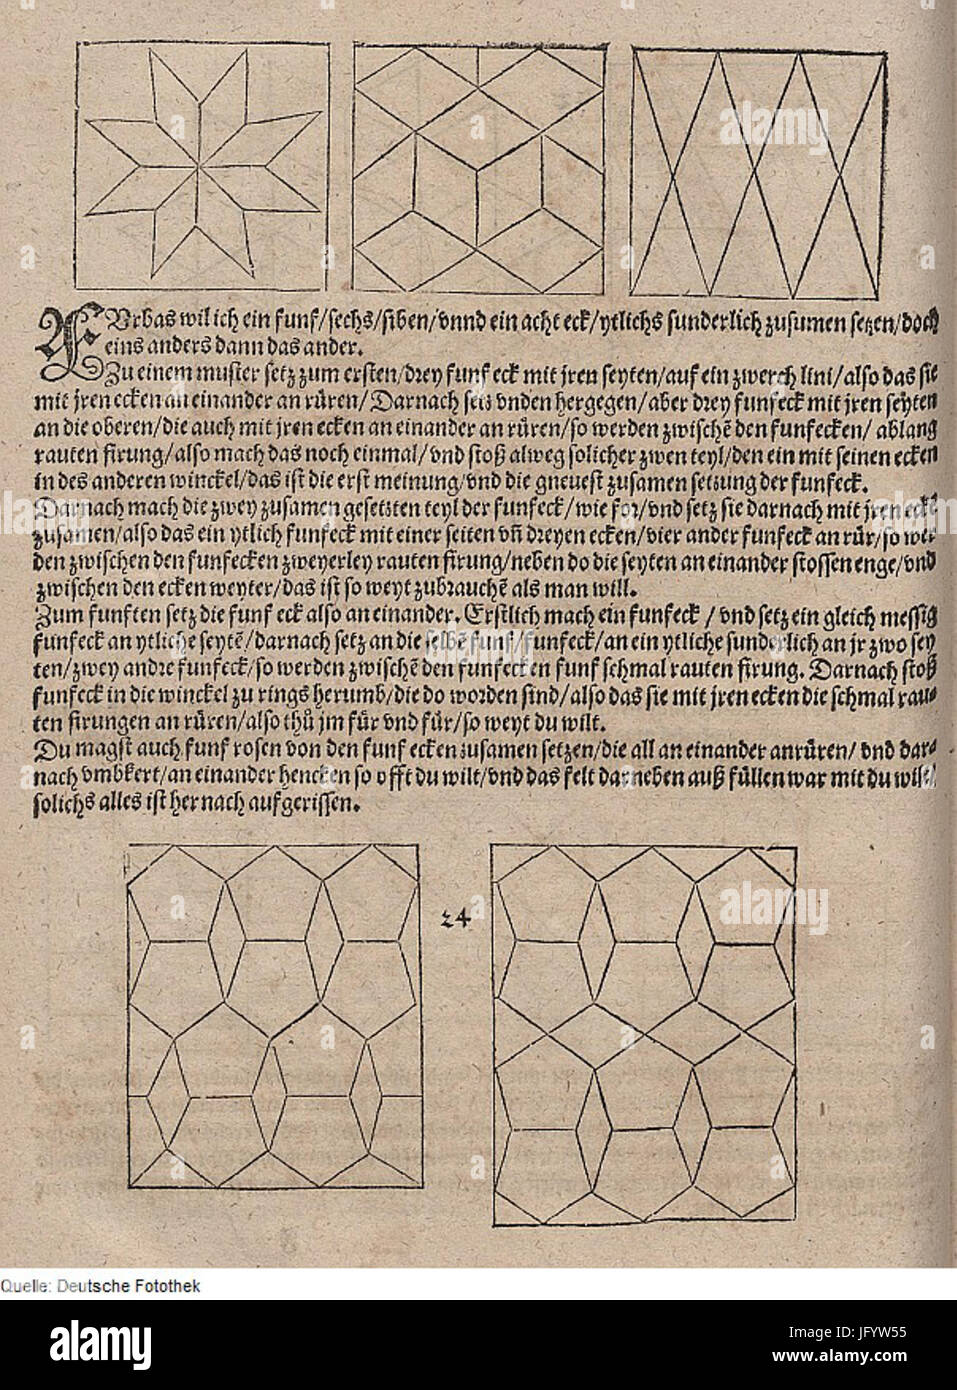 FVrbas wil ich ein funf/sechs/siben/vnnd ein acht eck/ytlichs sunderlich zusumen setzen/doch
eins anders dann das ander.
Zu einem muster setz zum ersten/drey funf eck mit jren seyten/auf ein zwerch lini/also das sie
mit jren ecken an einander an rüren/Darnach setz vnden hergegen/aber drey funfeck mit jren seyten
an die oberen/die auch mit jren ecken an einander an rüren/so werden zwischē den funfecken/ablang
rauten firung/also mach das noch einmal/vnd stoß alweg solicher zwen teyl/den ein mit seinen ecken
in des anderen winckel/das ist die erst meinung/vnd die gneuest zusamen setzung der funfeck.
Darnach mach die zwey zusamen gesetzten teyl der funfeck/wie for/vnd setz sie darnach mit jren eckē
zusamen/also das ein ytlich funfeck mit einer seiten vñ dreyen ecken/vier ander funfeck an rür/so wer
den zwischen den funfecken zweyerley rauten firung/neben do die seyten an einander stossen enge/vnd
zwischen den ecken weyter/das ist so weyt zubrauchē als man will.
Zum funften setz die funf eck also an einander. Erstlich mach ein funfeck/vnd setz ein gleich messig
funfeck an ytliche seytē/darnach setz an die selbē funf/funfeck/an ein ytliche sunderlich an jr zwo sey
ten/zwey andre funfeck/so werden zwischē den funfecken funf schmal rauten firung. Darnach stoß
funfeck in die winckel zu rings herumb/die do worden sind/also das sie mit jren ecken die schmal rau⸗
ten firungen an rüren/also thů jm für vnd für/so weyt du wilt.
Du magst auch funf rosen von den funf ecken zusamen setzen/die all an einander anrüren/vnd dar⸗
nach vmbkert/an einander hencken so offt du wilt/vnd das felt darneben auß füllen war mit du wilt/
solichs alles ist hernach aufgerissen.
24
Quelle: Deutsche Fotothek
alamy
Image ID: JFYW55
www.alamy.com